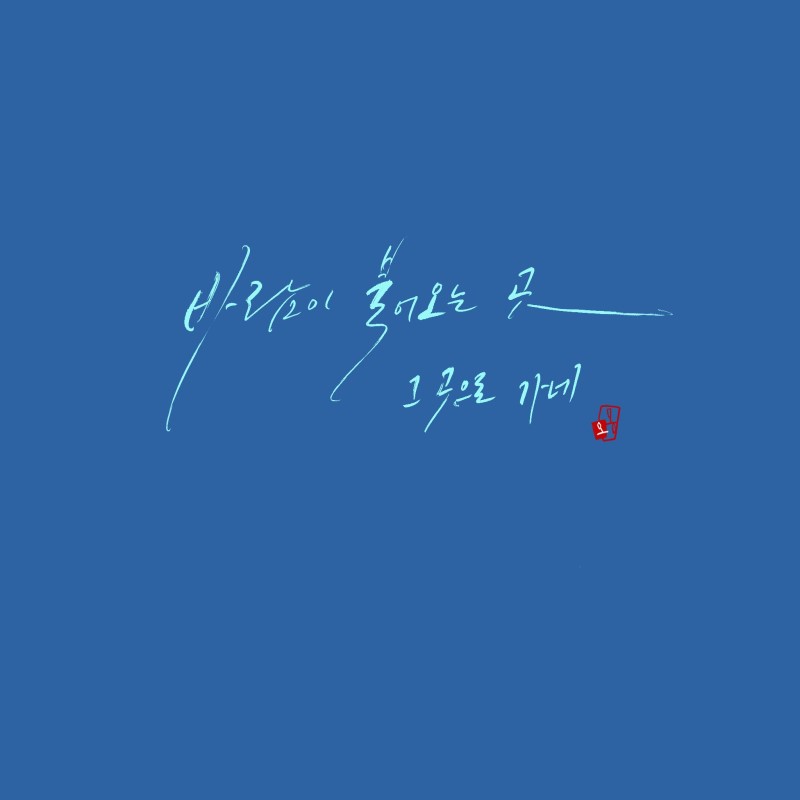 바람이 불어오는 곳
그 곳으로 가네
오